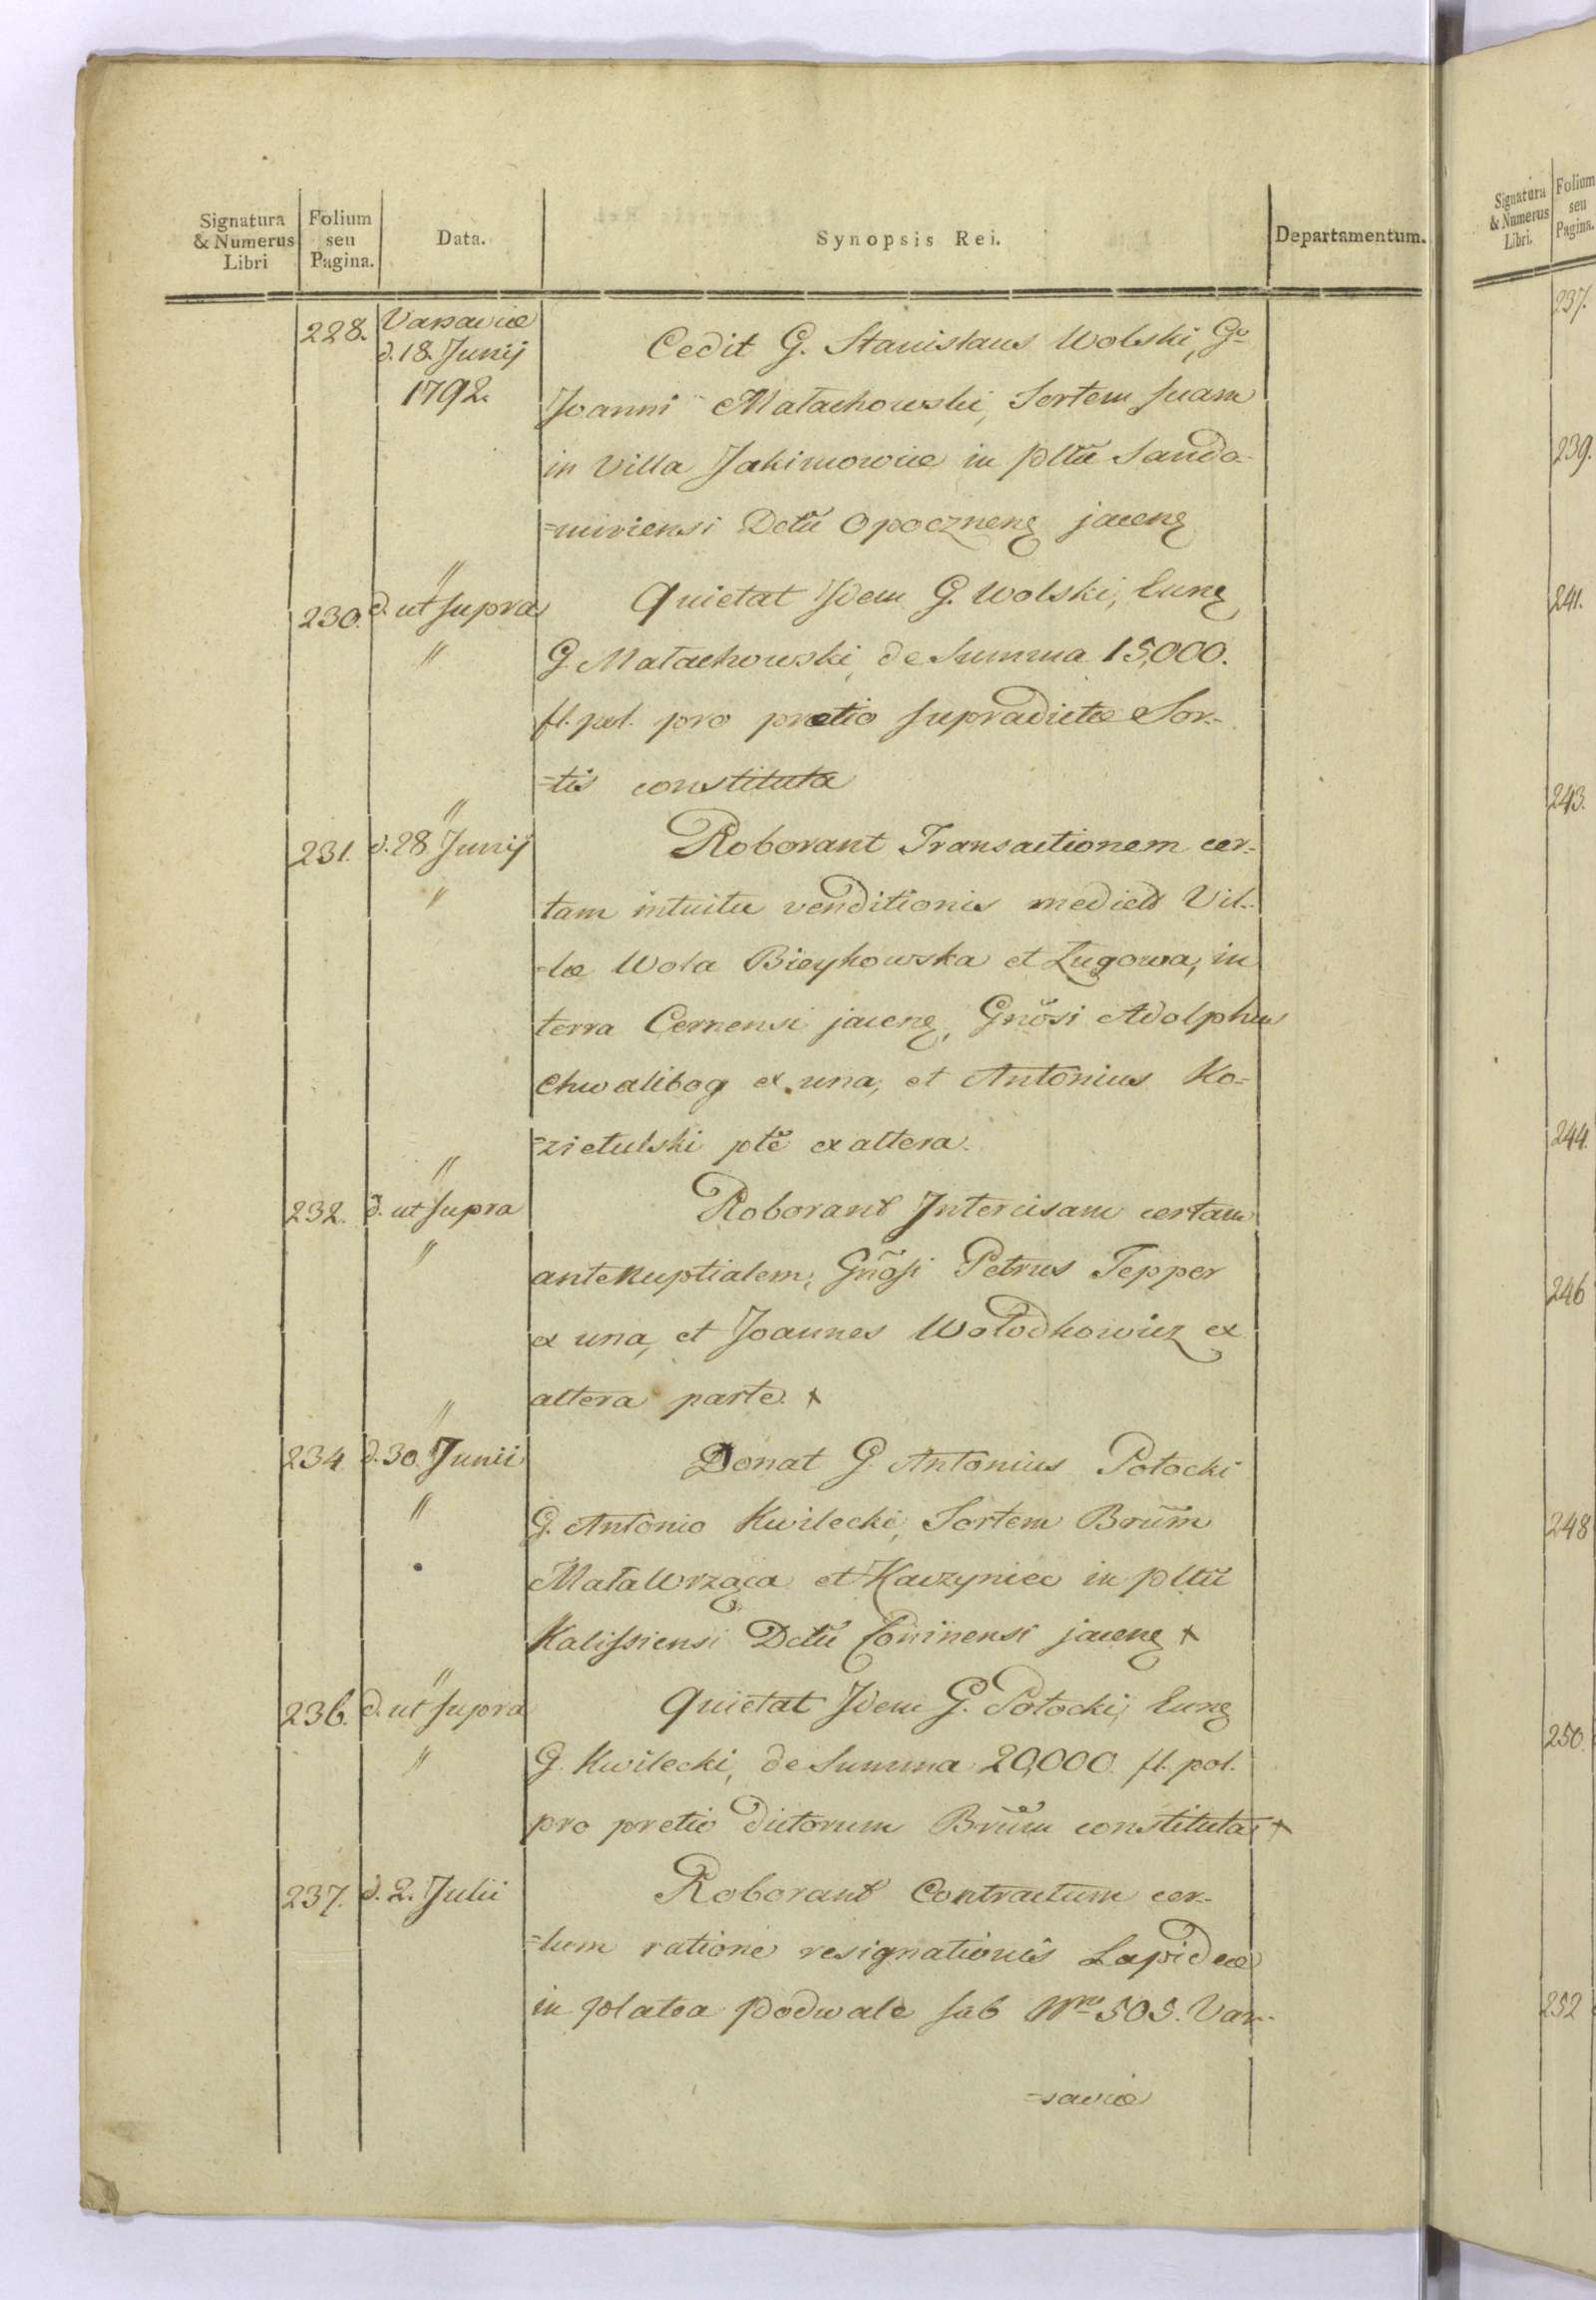 Signatura & Numerus Libri | Folium seu Pagina. | Data. | Synopsis Rei. | Departamentum.
228. Varsaviæ
d. 18. Junij
1792.
Cedit G. Stanislaus Wolski, Go
Joanni Małachowski, Sortem suam
in Villa Jakimowice in plttu Sando-
=miriensi Dctũ Opocznenẽ jacenẽ
230. " d. ut supra "
Quietat Idem G. Wolski, Eunẽ
G. Małachowski, de Summa 15,000.
fl. pol. pro prætio supradictæ Sor-
=tis constituta
231. " d. 28 Junij "
Roborant Transactionem cer-
tam intuitu venditionis mediet Vil-
=læ Wola Bieykowska et Ługowa, in
terra Cernensi jacenẽ, Gnõsi Adolphus
Chwalibog ex una, et Antonius Ko-
=zietulski ptẽ ex altera.
232. " d. ut supra "
Roborant Intercisam certam
antenuptialem, Gnõsi Petrus Tepper
ex una, et Joannes Wołodkowicz ex
altera parte. x
234. " d. 30. Junii "
Donat G. Antonius Potocki
G. Antonio Kwilecki, Sortem Bnũm
Mała Wrząca et Kaczyniec in plttũ
Kalissiensi Dctũ Coninensi jacenẽ x
236. " d. ut supra "
Quietat Idem G. Potocki, Eunẽ
G. Kwilecki, de Summa 20,000 fl. pol.
pro pretio dictorum Bnũm constituta x
237. d. 2. Julii
Roborant Contractum cer-
=tum ratione resignationis Lapideæ
in platea Podwale sub Nro 505. Var-
=saviæ
Signatura & Numerus Libri. | Folium seu Pagina.
237.
239.
241.
243.
244.
246
248
250.
252